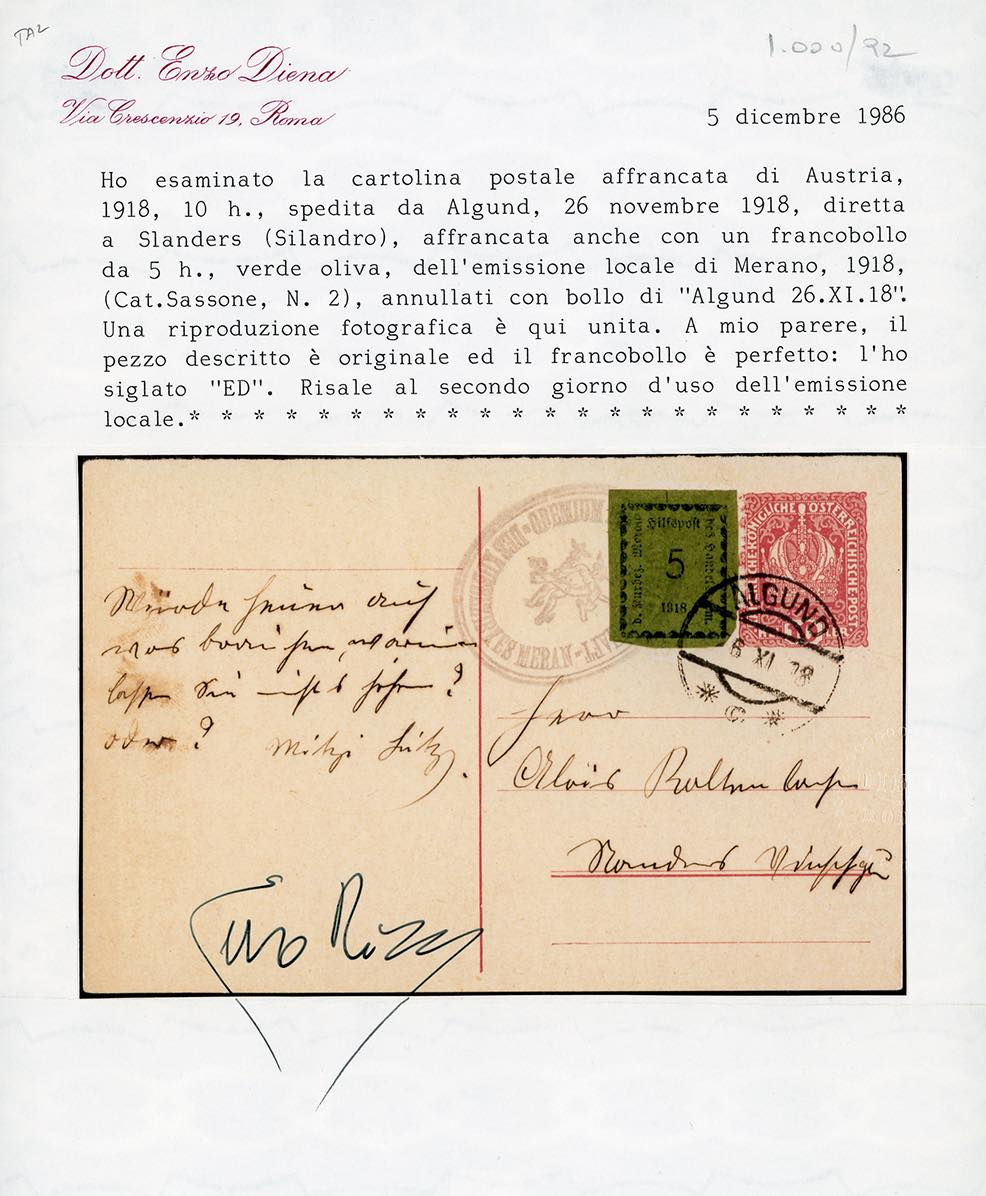 TA2
1.000/92
Dott. Enzo Diena
Via Crescenzio 19, Roma
5 dicembre 1986
Ho esaminato la cartolina postale affrancata di Austria,
1918, 10 h., spedita da Algund, 26 novembre 1918, diretta
a Slanders (Silandro), affrancata anche con un francobollo
da 5 h., verde oliva, dell'emissione locale di Merano, 1918,
(Cat.Sassone, N. 2), annullati con bollo di "Algund 26.XI.18".
Una riproduzione fotografica è qui unita. A mio parere, il
pezzo descritto è originale ed il francobollo è perfetto: l'ho
siglato "ED". Risale al secondo giorno d'uso dell'emissione
locale.* * * * * * * * * * * * * * * * * * * * * * *
MERAN
Hilfspost
5
1918
d. Kurbez. Meran
KÖNIGLICHE ÖSTERREICHISCHE POST
ALGUND
6 XI 18
* C *
auf
?
oder ?
Mitzi
Herr
Alois